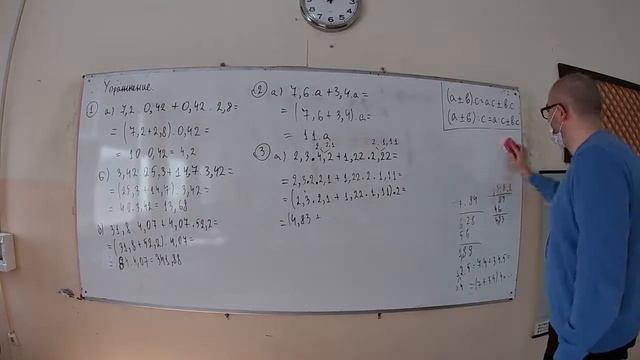 Упражнение.
① а) 7,2 . 0,42 + 0,42 . 2,8 =
= (7,2+2,8) . 0,42 =
= 10 . 0,42 = 4,2
б) 3,42 . 25,3 + 14,7 . 3,42 =
= (25,3 + 14,7) . 3,42 =
= 40 . 3,42 = 13,68
в) 31,8 . 4,07 + 4,07 . 52,2 =
= (31,8 + 52,2) . 4,07 =
= 84 . 4,07 = 341,88
② а) 7,6 . a + 3,4 . a =
= (7,6 + 3,4) . a =
= 11 . a
2 . 2,1
2 . 1,11
③ а) 2,3 . 4,2 + 1,22 . 2,22 =
= 2,3 . 2 . 2,1 + 1,22 . 2 . 1,11 =
= (2,3 . 2,1 + 1,22 . 1,11) . 2 =
= (4,83 +
(a ± b) . c = a.c ± b.c
(a ± b) : c = a:c ± b:c